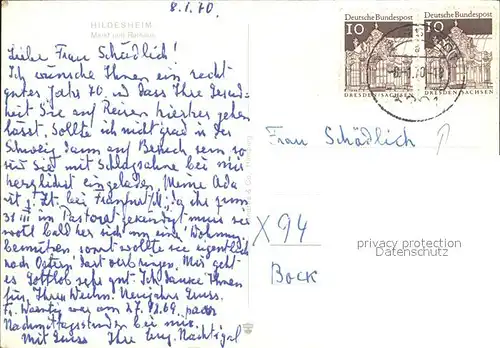 8.1.70.
HILDESHEIM
Markt und Rathaus
Liebe Frau Schädlich!
Ich wünsche Ihnen ein recht
gutes Jahr 70. und dass Ihre Gesund-
heit Sie auf Reisen hierher gehen
lässt. Sollte ich nicht grad in der
Schweiz dann auf Besuch sein so
sind Sie mit Schlagsahne bei mir
herzlichst eingeladen. Meine Ada
ist z. Zt. bei Frankfurt/M., da ihr zum
31 III in Pastorat gekündigt muss sie
wohl bald her sich um eine Wohnung
bemühen sonst wollte sie eigentlich
nach Ostern dort verbringen. Mir geht
es Gottlob sehr gut. Ich danke Ihnen
für Ihren Weihn. Neujahrs Gruss.
Fr. war am 27.12.69. paar
Nachmittagsstunden bei mir.
Mit Gruss Ihre Nachtigal
Deutsche Bundespost
10
DRESDEN/SACHSEN
Deutsche Bundespost
10
DRESDEN/SACHSEN
Frau Schädlich
X 94
Bock
privacy protection
Datenschutz